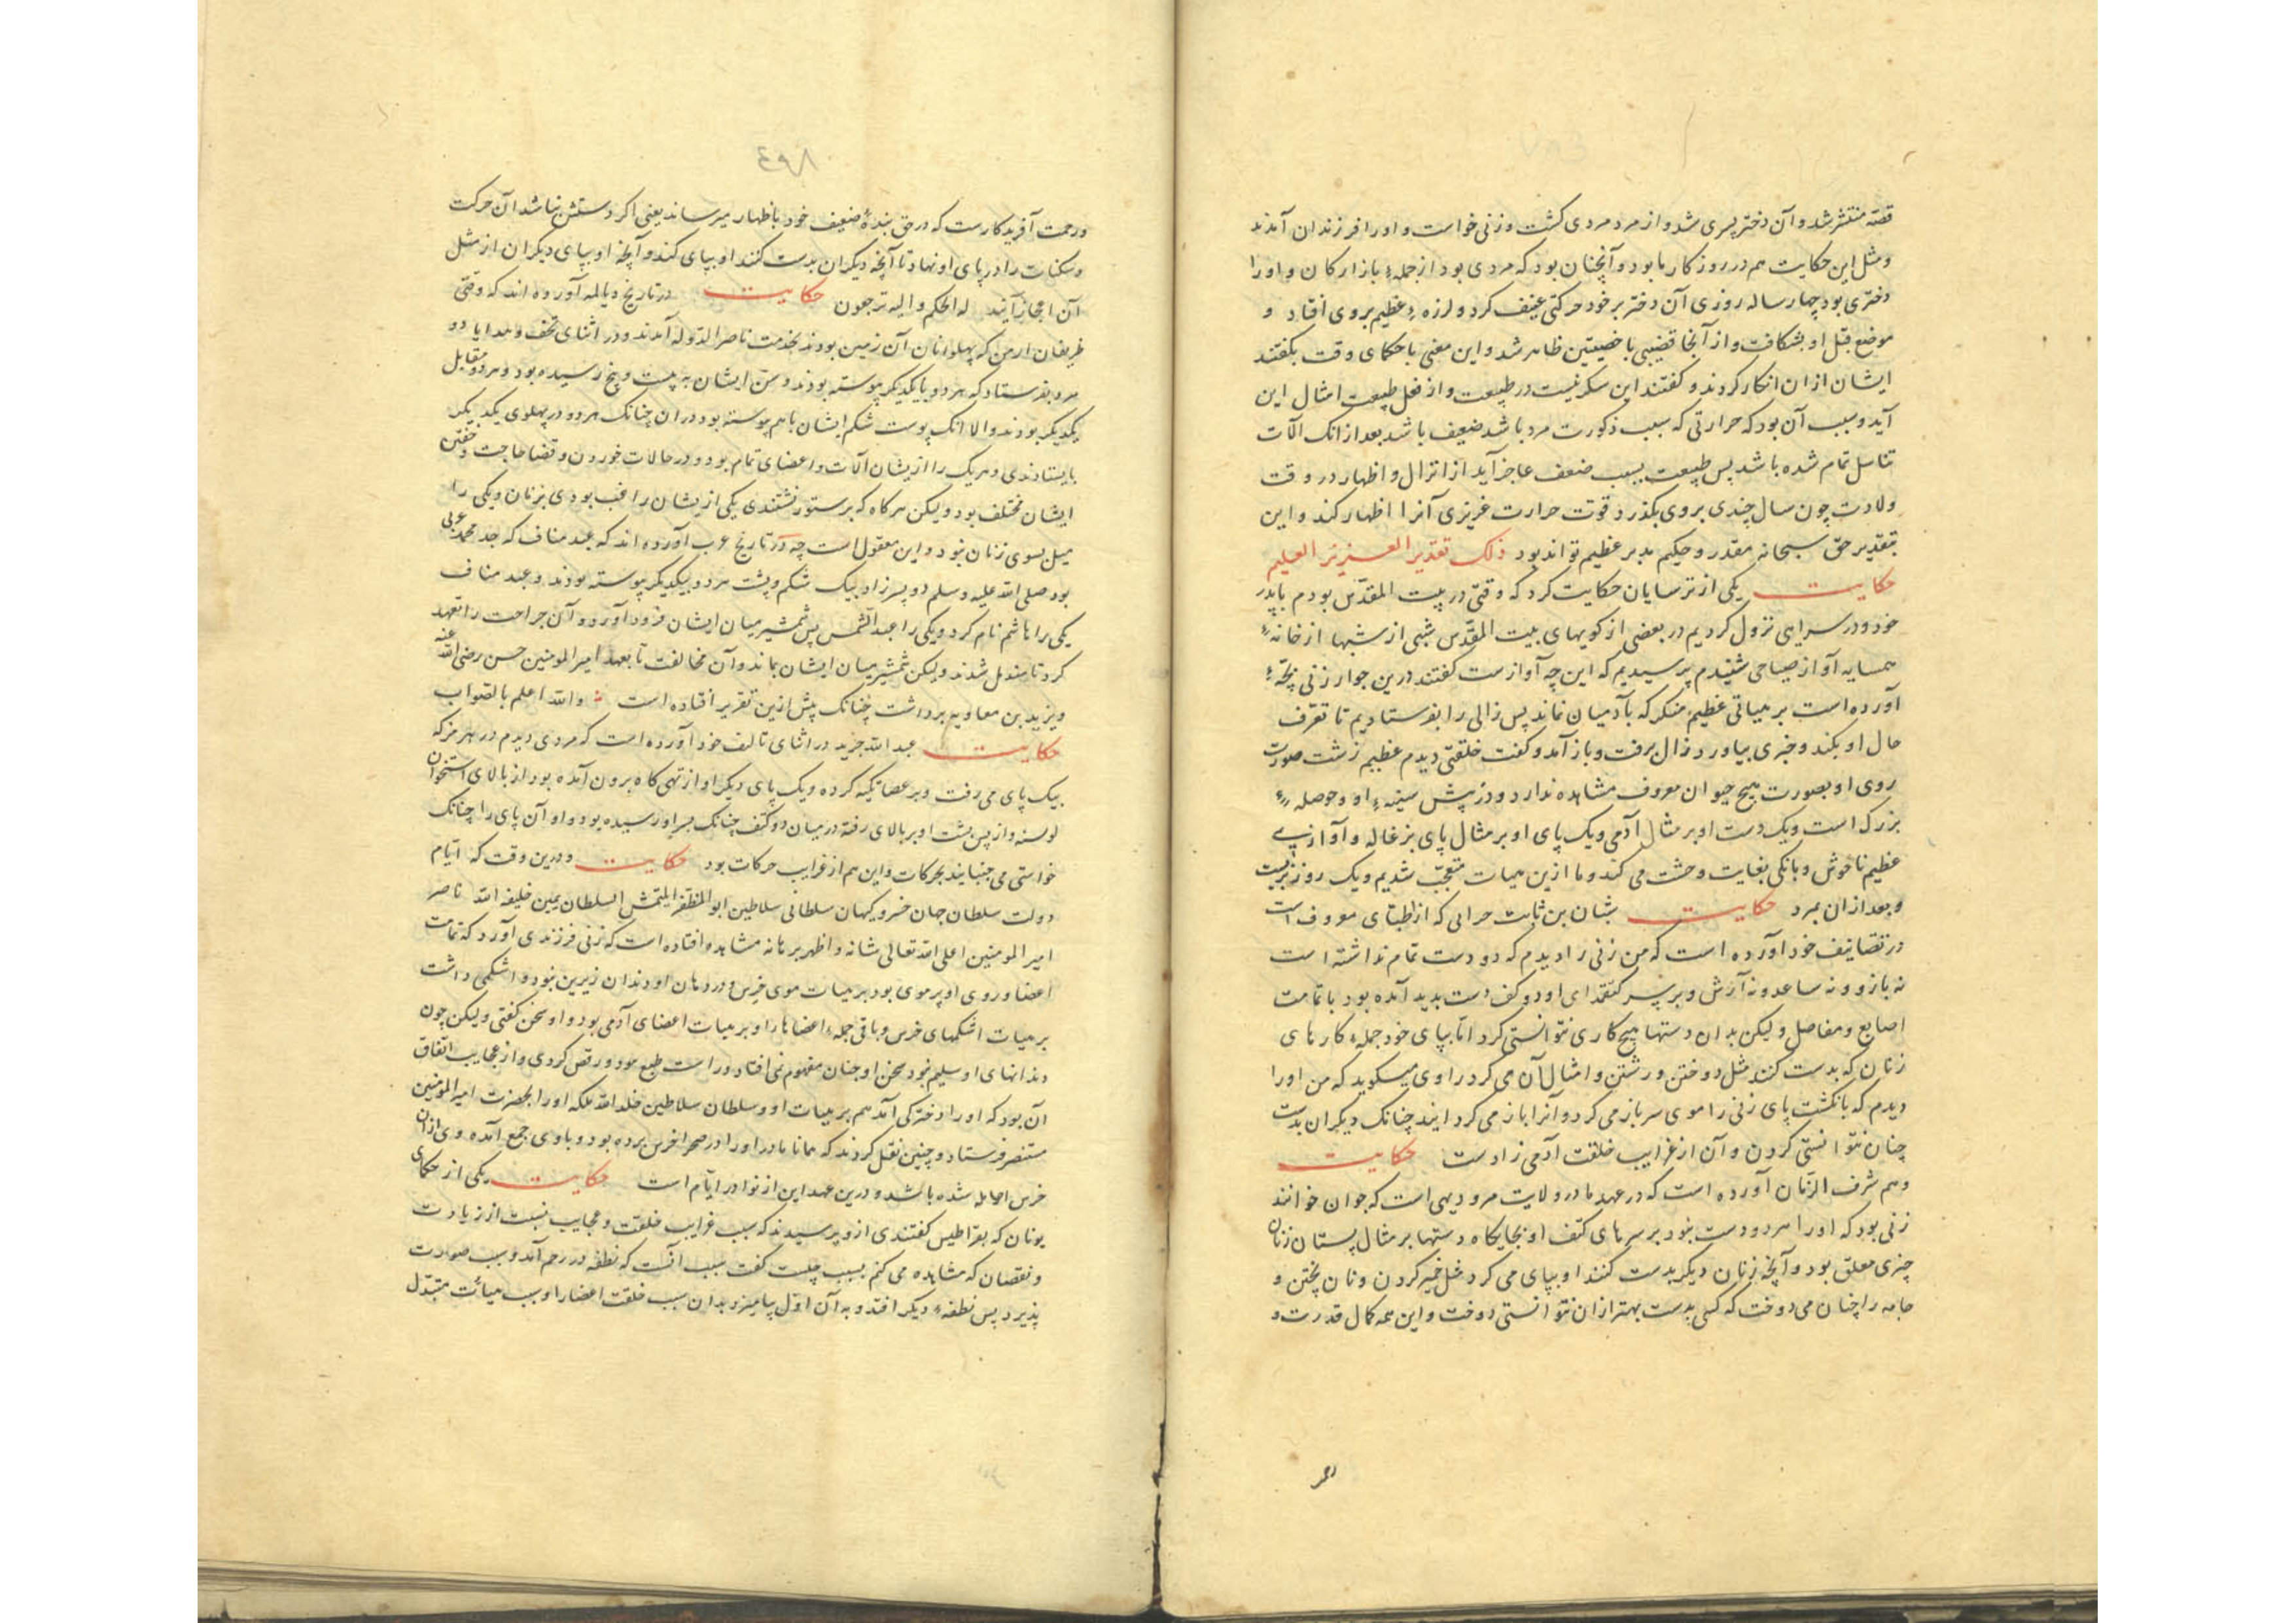 قصه منتشر شد و آن دختر پسری شد و از مرد مردی کشت و زنی خواست و او را فرزندان آمدند
و مثل این حکایت هم در روزکار ما بود و آنچنان بود که مردی بود از جمله بازارکان و او را
دختری بود چهار ساله روزی آن دختر بر خود حرکتی عنیف کرد و لرزهٔ عظیم بر وی افتاد و
موضع قبل او بشکافت و از آنجا قضیبی با خصیتین ظاهر شد و این معنی با حکمای وقت بکفتند
ایشان از ان انکار کردند و کفتند این سکر نیست در طبیعت و از فعل طبیعت امثال این
آید و سبب آن بود که حرارتی که سبب ذکورت مرد باشد ضعیف باشد بعد از انک آلات
تناسل تمام شده باشد پس طبیعت بسبب ضعف عاجز آید از انزال و اظهار در وقت
ولادت چون سال چندی بر وی بکذرد قوت حرارت غریزی آنرا اظهار کند و این
بتقدیر حق سبحانه مقدر و حکیم مدبر عظیم تواند بود ذلک تقدیر العزیز العلیم
حکایت یکی از ترسایان حکایت کرد که وقتی در بیت المقدس بودم با پدر
خود و در سرایی نزول کردیم در بعضی از کویهای بیت المقدس شبی از شبها از خانهٔ
همسایه آواز صیاحی شنیدم پرسیدیم که این چه آوازست کفتند درین جوار زنی بچهٔ
آورده است بر هیاتی عظیم منکر که بآدمیان نماند پس زالی را بفرستادیم تا تعرف
حال او بکند و خبری بیاورد زال برفت و باز آمد و کفت خلقتی دیدم عظیم زشت صورت
روی او بصورت هیچ حیوان معروف مشابهه ندارد و در پیش سینهٔ او و حوصلهٔ
بزرک است و یک دست او بر مثال آدمی و یک پای او بر مثال پای بزغاله و آوازی
عظیم ناخوش و بانکی بغایت وحشت می کند و ما ازین هیات متعجب شدیم و یک روز بزیست
و بعد از ان بمرد حکایت بن ثابت حرانی که از اطبای معروف است
در تصانیف خود آورده است که من زنی را دیدم که دو دست تمام نداشته است
نه بازو و نه ساعد و نه آرش و بر سر کتفهای او دو کف دست بدید آمده بود با تمامت
اصابع و مفاصل ولیکن بدان دستها هیچ کاری نتوانستی کرد اما بپای خود جملهٔ کارهای
زنان که بدست کنند مثل دوختن و رشتن و امثال آن می کرد راوی میکوید که من او را
دیدم که بانکشت پای زنی را موی سر باز می کرد و آنرا باز می کردانید چنانک دیکران بدست
چنان نتوانستی کردن و آن از غرایب خلقت آدمی زادست حکایت
و هم شرف الزمان آورده است که در عهد ما در ولایت مرو دیهی است که جوان خوانند
زنی بود که او را هر دو دست نبود بر سرهای کتف او بجایکاه دستها بر مثال پستان زنان
چیزی معلق بود و آنچه زنان دیکر بدست کنند او بپای می کرد مثل خمیر کردن و نان پختن و
جامه را چنان می دوخت که کسی بدست بهتر از ان نتوانستی دوخت و این همه کمال قدرت و
٤٩٨
و رحمت آفریدکارست که در حق بندهٔ ضعیف خود باظهار میرساند یعنی اکر دستش نباشد آن حرکت
و سکنات را در پای او نهاد تا آنچه دیکران بدست کنند او بپای کند و آنچه او بپای دیکران از مثل
آن عاجز آیند له الحکم و الیه ترجعون حکایت در تاریخ دیالمه آورده اند که وقتی
ارمن که پهلوانان آن زمین بودند بخدمت ناصر الدوله آمدند و در اثنای تحف و هدایا دو
مرد بفرستاد که هر دو بایکدیکر پیوسته بودند و سن ایشان به بیست و پنج رسیده بود و هر دو مقابل
یکدیکر بودند و الا انک پوست شکم ایشان باهم پیوسته بود در ان چنانک هر دو در پهلوی یکدیکر
بایستادندی و هر یک را از یشان آلات و اعضای تمام بود و در حالات خوردن و قضا حاجت و خفتن
ایشان مختلف بود ولیکن هر کاه که بر ستور نشستندی یکی از یشان راغب بودی بزنان و یکی را
میل بسوی زنان نبود و این معقول است چه در تاریخ عرب آورده اند که عبد مناف که جد محمد عربی
بود صلی الله علیه و سلم دو پسر زاد بیک شکم و پشت هر دو بیکدیکر پیوسته بودند و عبد مناف
یکی را هاشم نام کرد و یکی را عبد الشمس پس شمشیر میان ایشان فرود آورد و آن جراحت را تعهد
کرد تا مندمل شدند ولیکن شمشیر میان ایشان بماند و آن مخالفت تا بعهد امیر المومنین حسن رضی الله عنه
و یزید بن معاویه برداشت چنانک پیش ازین تقریر افتاده است و الله اعلم بالصواب
حکایت عبد الله در اثنای تالیف خود آورده است که مردی دیدم در که
بیک پای می رفت و بر عصا تکیه کرده و یک پای دیکر او از تهی کاه برون آمده بود از بالای استخوان
و از پس پشت او بر بالای رفته در میان دو کتف چنانک بسر او رسیده بود و او آن پای را چنانک
خواستی می جنبانید بحرکات و این هم از غرایب حرکات بود حکایت و درین وقت که ایام
دولت سلطان جهان خسرو کیهان سلطان سلاطین ابو المظفر ایلتمش السلطان یمین خلیفة الله ناصر
امیر المومنین اعلی الله تعالی شانه و اظهر برهانه مشاهده افتاده است که زنی فرزندی آورد که تمامت
اعضا و روی او پر موی بود بر هیات موی خرس و در دهان او دندان زیرین نبود و اشکمی داشت
بر هیات اشکمهای خرس و باقی جملهٔ اعضاها را و بر هیات اعضای آدمی بود و او سخن کفتی ولیکن چون
دندانهای او سلیم نبود سخن او چنان مفهوم نمی افتاد و راست طبع بود و رقص کردی و از عجایب اتفاق
آن بود که او را دخترکی آمد هم بر هیات او و سلطان سلاطین خلد الله ملکه او را بحضرت امیر المومنین
مستنصر فرستاد و چنین نقل کردند که همانا مادر او را در صحرا خرس برده بود و با وی جمع آمده و وی از ان
خرس حامله شده باشد و درین عهد این از نوادر ایام است حکایت یکی از حکمای
یونان که بقراطیس کفتندی ازو پرسیدند که سبب غرایب خلقت و عجایب نسبت از زیادت
و نقصان که مشاهده می کنم بسبب چیست کفت سبب آنست که نطفه در رحم آمد و سبب صورت
پذیرد پس نطفهٔ دیکر افتد و به آن اول بیامیزد بدان سبب خلقت اعضا را و سبب هیأت متبدل